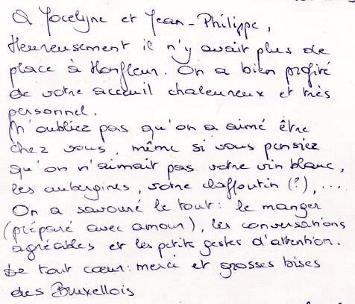 A Jocelyne et Jean-Philippe,
Heureusement il n'y avait plus de
place à Honfleur. On a bien profité
de votre acceuil chaleureux et très
personnel.
N'oubliez pas qu'on a aimé être
chez vous, même si vous pensiez
qu'on n'aimait pas votre vin blanc,
les aubergines, votre claffoutin (?), ....
On a savouré le tout: le manger
(préparé avec amour), les conversations
agréables et les petits gestes d'attention.
De tout cœur: merci et grosses bises
des Bruxellois